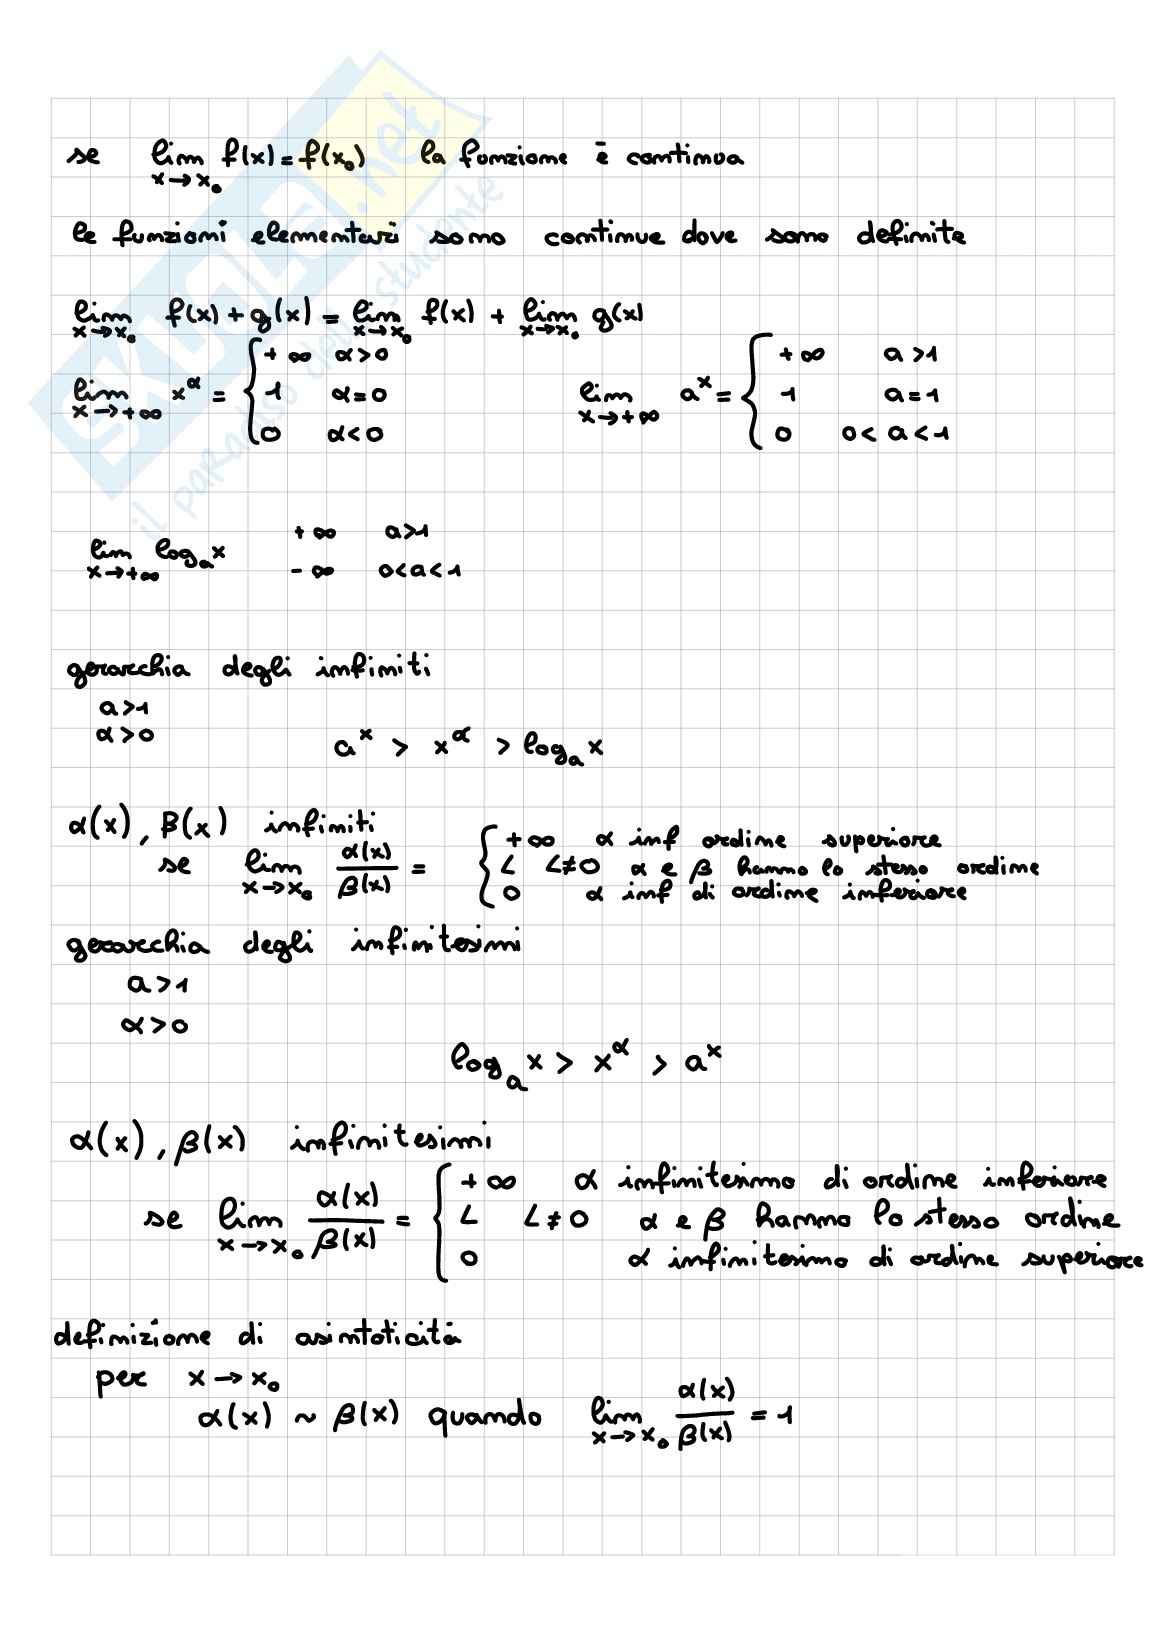 se lim f(x) = f(x₀) la funzione è continua
x→x₀
le funzioni elementari sono continue dove sono definite
lim f(x) + g(x) = lim f(x) + lim g(x)
x→x₀ x→x₀ x→x₀
lim x^α = { +∞ α>0
x→+∞ 1 α=0
0 α<0
lim a^x = { +∞ a>1
x→+∞ 1 a=1
0 0<a<1
lim logₐx +∞ a>1
x→+∞ -∞ 0<a<1
gerarchia degli infiniti
a>1
α>0
a^x > x^α > logₐx
α(x), β(x) infiniti
se lim α(x)/β(x) = { +∞ α inf ordine superiore
x→x₀ L L≠0 α e β hanno lo stesso ordine
0 α inf di ordine inferiore
gerarchia degli infinitesimi
a>1
α>0
logₐx > x^α > a^x
α(x), β(x) infinitesimi
se lim α(x)/β(x) = { +∞ α infinitesimo di ordine inferiore
x→x₀ L L≠0 α e β hanno lo stesso ordine
0 α infinitesimo di ordine superiore
definizione di asintoticità
per x→x₀
α(x) ~ β(x) quando lim α(x)/β(x) = 1
x→x₀
SKUOLA.net
il paradiso dello studente